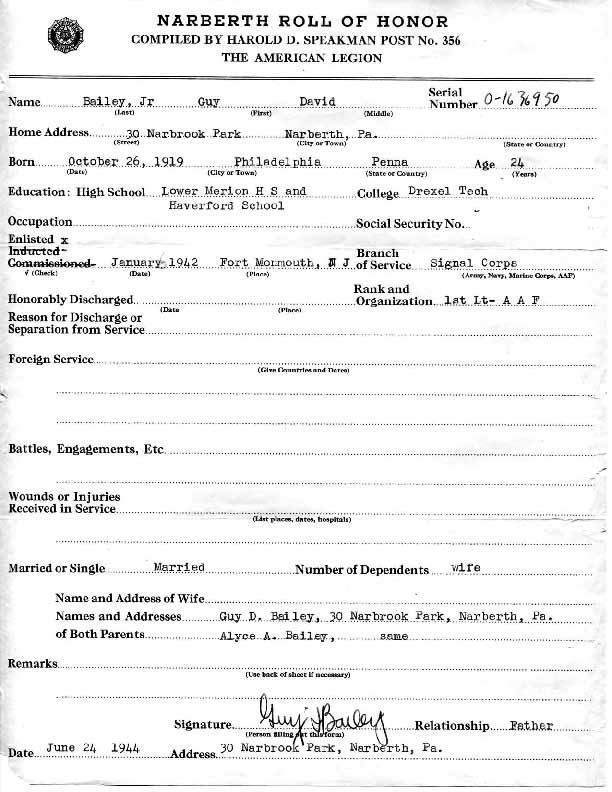 NARBERTH ROLL OF HONOR
COMPILED BY HAROLD D. SPEAKMAN POST No. 356
THE AMERICAN LEGION
Name Bailey, Jr Guy David Serial Number 0-1636950
(Last) (First) (Middle)
Home Address 30 Narbrook Park Narberth, Pa.
(Street) (City or Town) (State or Country)
Born October 26, 1919 Philadelphia Penna Age 24
(Date) (City or Town) (State or Country) (Years)
Education: High School Lower Merion H S and College Drexel Tech
Haverford School
Occupation Social Security No.
Enlisted x
Inducted
Commissioned January 1942 Fort Monmouth, N J Branch of Service Signal Corps
√ (Check) (Date) (Place) (Army, Navy, Marine Corps, AAF)
Honorably Discharged Rank and Organization 1st Lt- A A F
(Date (Place)
Reason for Discharge or
Separation from Service
Foreign Service
(Give Countries and Dates)
Battles, Engagements, Etc
Wounds or Injuries
Received in Service
(List places, dates, hospitals)
Married or Single Married Number of Dependents wife
Name and Address of Wife
Names and Addresses Guy D. Bailey, 30 Narbrook Park, Narberth, Pa.
of Both Parents Alyce A. Bailey, same
Remarks
(Use back of sheet if necessary)
Signature Guy D Bailey Relationship Father
(Person filling out this form)
Date June 24 1944 Address 30 Narbrook Park, Narberth, Pa.